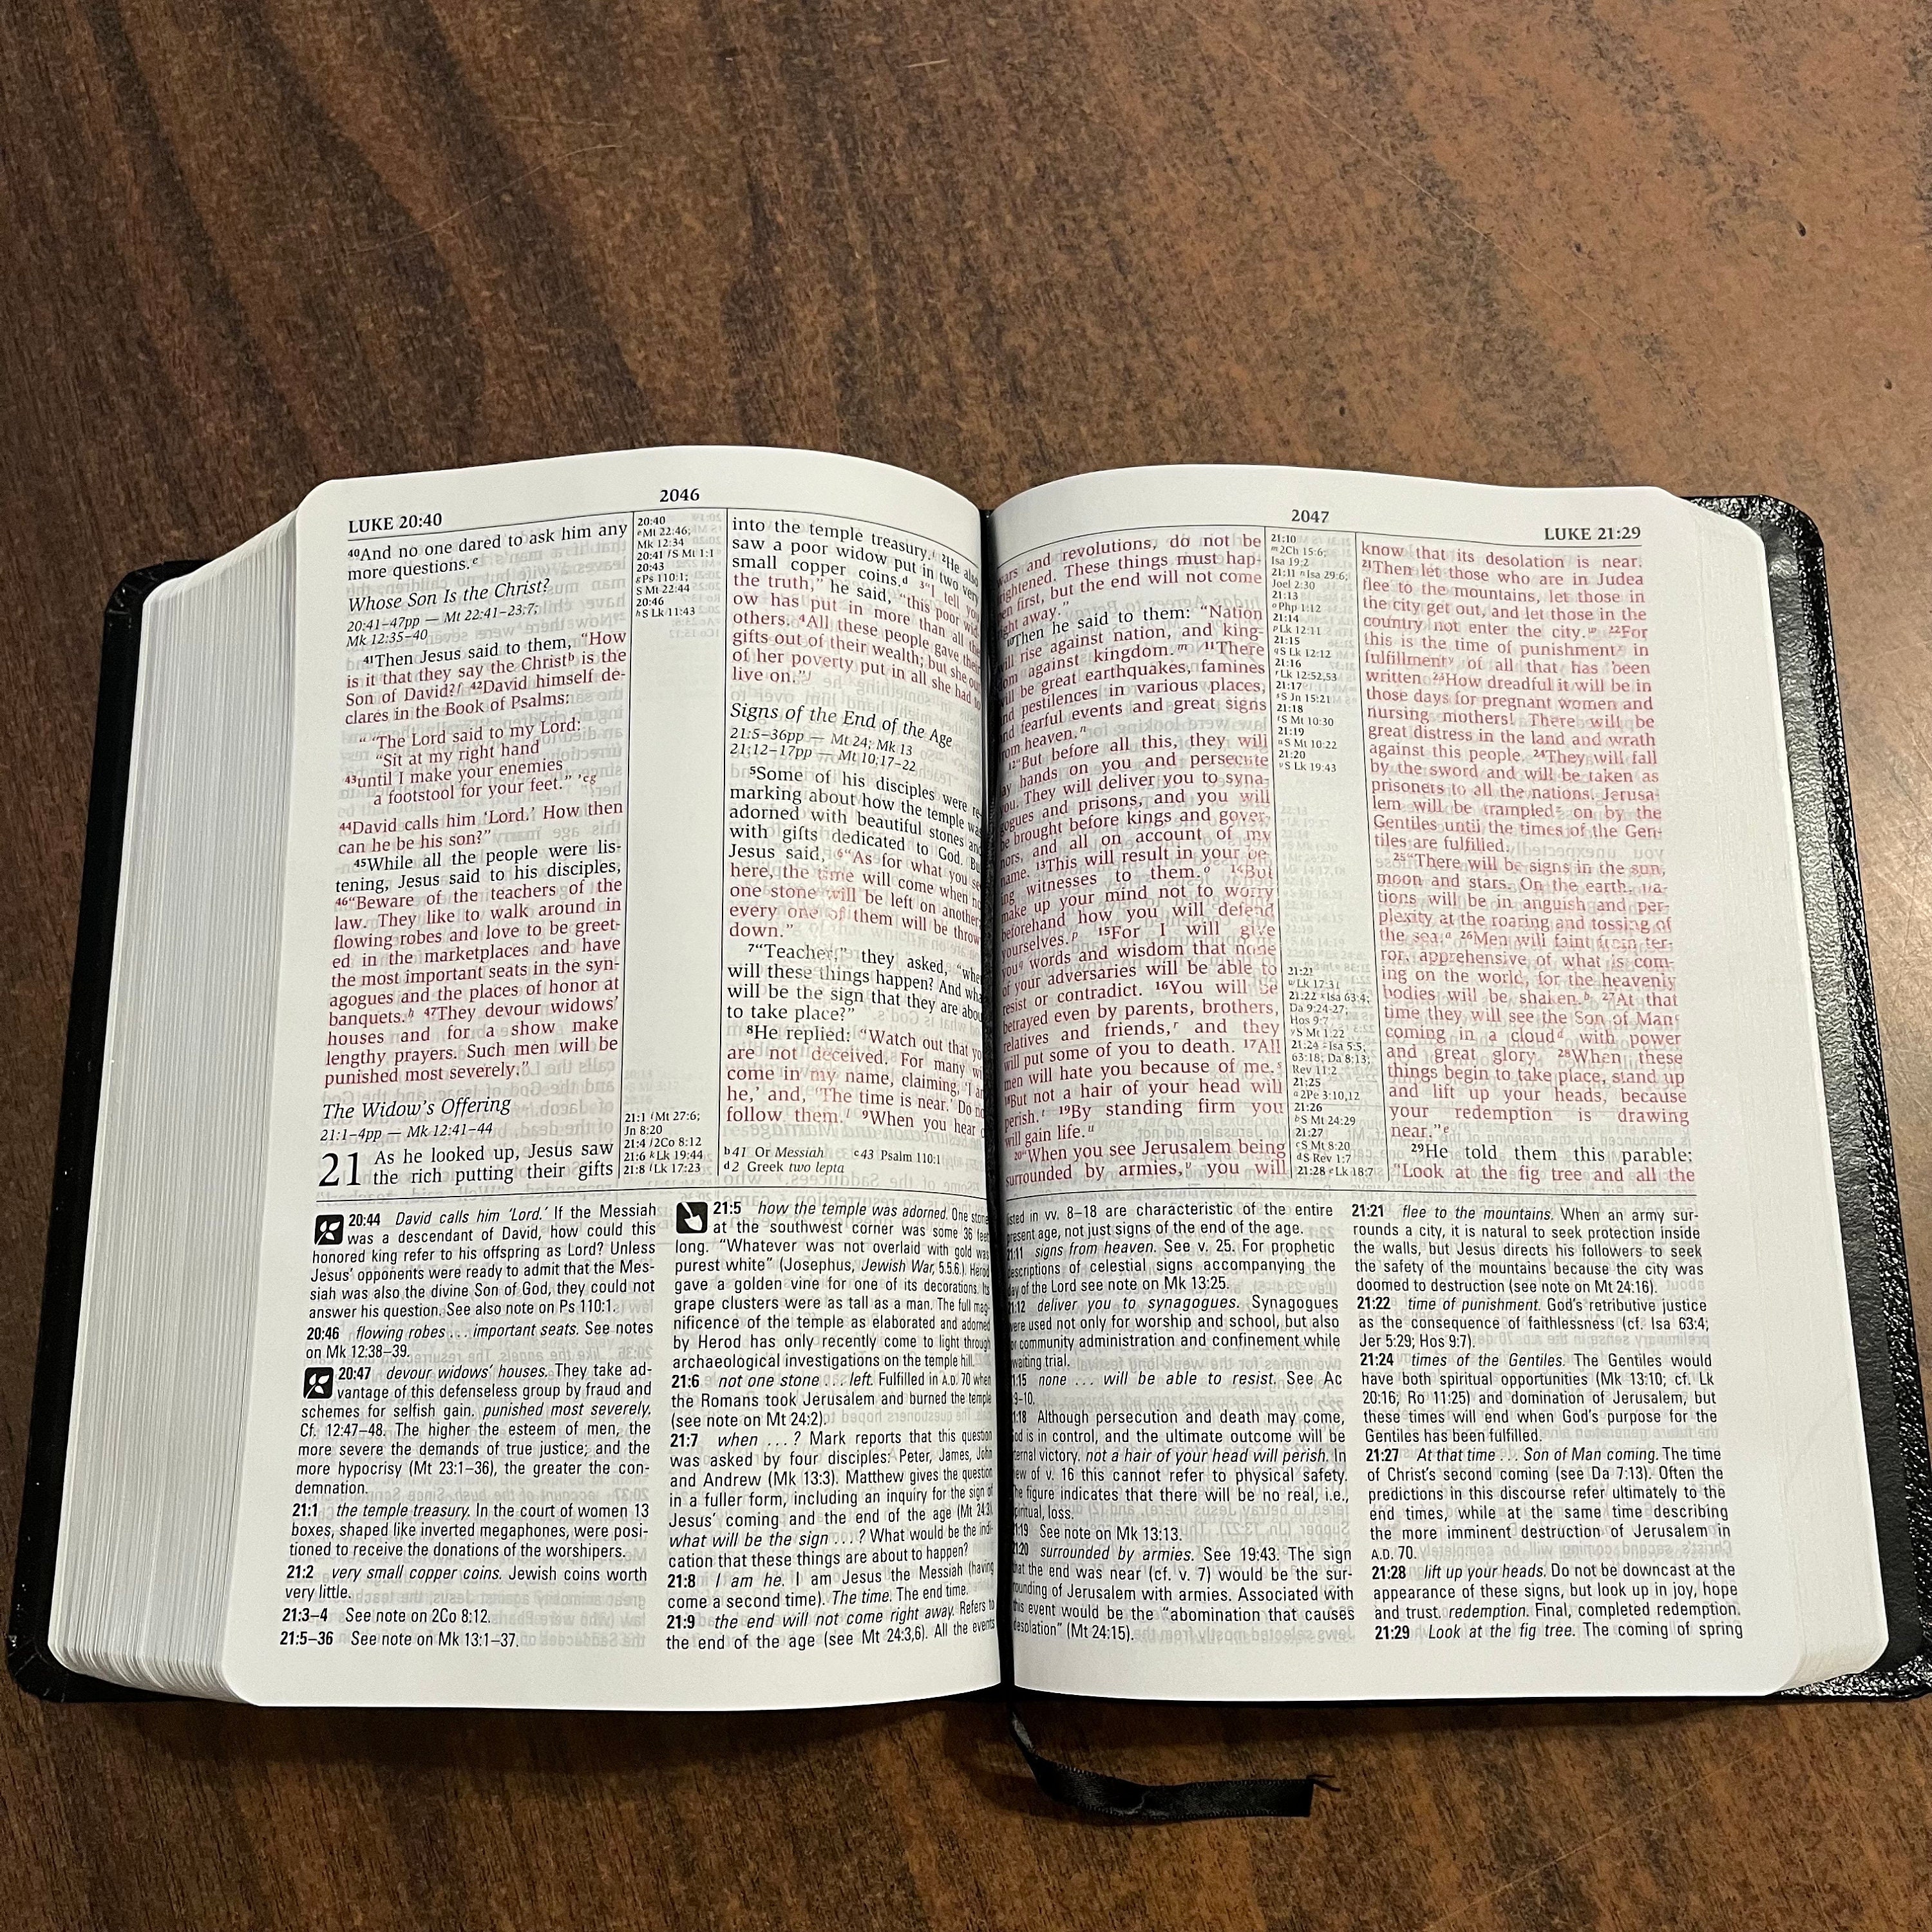 2046
LUKE 20:40
40And no one dared to ask him any
more questions.e
Whose Son Is the Christ?
20:41–47pp — Mt 22:41–23:7;
Mk 12:35–40
41Then Jesus said to them, “How
is it that they say the Christb is the
Son of David?f 42David himself de-
clares in the Book of Psalms:
“ ‘The Lord said to my Lord:
“Sit at my right hand
43until I make your enemies
a footstool for your feet.” ’cg
44David calls him ‘Lord.’ How then
can he be his son?”
45While all the people were lis-
tening, Jesus said to his disciples,
46“Beware of the teachers of the
law. They like to walk around in
flowing robes and love to be greet-
ed in the marketplaces and have
the most important seats in the syn-
agogues and the places of honor at
banquets.h 47They devour widows’
houses and for a show make
lengthy prayers. Such men will be
punished most severely.”
The Widow’s Offering
21:1–4pp — Mk 12:41–44
21 As he looked up, Jesus saw
the rich putting their gifts
20:40
eMt 22:46;
Mk 12:34
20:41 fS Mt 1:1
20:43
gPs 110:1;
S Mt 22:44
20:46
hS Lk 11:43
21:1 iMt 27:6;
Jn 8:20
21:4 j2Co 8:12
21:6 kLk 19:44
21:8 lLk 17:23
into the temple treasury.i 2He also
saw a poor widow put in two very
small copper coins.d 3“I tell you
the truth,” he said, “this poor wid-
ow has put in more than all the
others. 4All these people gave their
gifts out of their wealth; but she out
of her poverty put in all she had to
live on.”j
Signs of the End of the Age
21:5–36pp — Mt 24; Mk 13
21:12–17pp — Mt 10:17–22
5Some of his disciples were re-
marking about how the temple was
adorned with beautiful stones and
with gifts dedicated to God. But
Jesus said, 6“As for what you see
here, the time will come when no
one stone will be left on another;
every one of them will be thrown
down.”
7“Teacher,” they asked, “when
will these things happen? And what
will be the sign that they are about
to take place?”
8He replied: “Watch out that you
are not deceived. For many will
come in my name, claiming, ‘I am
he,’ and, ‘The time is near.’ Do not
follow them.l 9When you hear of
b41 Or Messiah c43 Psalm 110:1
d2 Greek two lepta
20:44 David calls him ‘Lord.’ If the Messiah
was a descendant of David, how could this
honored king refer to his offspring as Lord? Unless
Jesus’ opponents were ready to admit that the Mes-
siah was also the divine Son of God, they could not
answer his question. See also note on Ps 110:1.
20:46 flowing robes . . . important seats. See notes
on Mk 12:38–39.
20:47 devour widows’ houses. They take ad-
vantage of this defenseless group by fraud and
schemes for selfish gain. punished most severely.
Cf. 12:47–48. The higher the esteem of men, the
more severe the demands of true justice; and the
more hypocrisy (Mt 23:1–36), the greater the con-
demnation.
21:1 the temple treasury. In the court of women 13
boxes, shaped like inverted megaphones, were posi-
tioned to receive the donations of the worshipers.
21:2 very small copper coins. Jewish coins worth
very little.
21:3–4 See note on 2Co 8:12.
21:5–36 See note on Mk 13:1–37.
21:5 how the temple was adorned. One stone
at the southwest corner was some 36 feet
long. “Whatever was not overlaid with gold was
purest white” (Josephus, Jewish War, 5.5.6.). Herod
gave a golden vine for one of its decorations. Its
grape clusters were as tall as a man. The full mag-
nificence of the temple as elaborated and adorned
by Herod has only recently come to light through
archaeological investigations on the temple hill.
21:6 not one stone . . . left. Fulfilled in A.D. 70 when
the Romans took Jerusalem and burned the temple
(see note on Mt 24:2).
21:7 when . . . ? Mark reports that this question
was asked by four disciples: Peter, James, John
and Andrew (Mk 13:3). Matthew gives the question
in a fuller form, including an inquiry for the sign of
Jesus’ coming and the end of the age (Mt 24:3).
what will be the sign . . . ? What would be the indi-
cation that these things are about to happen?
21:8 I am he. I am Jesus the Messiah (having
come a second time). The time. The end time.
21:9 the end will not come right away. Refers to
the end of the age (see Mt 24:3,6). All the events
2047
LUKE 21:29
wars and revolutions, do not be
frightened. These things must hap-
pen first, but the end will not come
right away.”
10Then he said to them: “Nation
will rise against nation, and king-
dom against kingdom.m 11There
will be great earthquakes, famines
and pestilences in various places,
and fearful events and great signs
from heaven.n
12“But before all this, they will
lay hands on you and persecute
you. They will deliver you to syna-
gogues and prisons, and you will
be brought before kings and gover-
nors, and all on account of my
name. 13This will result in your be-
ing witnesses to them.o 14But
make up your mind not to worry
beforehand how you will defend
yourselves.p 15For I will give
youq words and wisdom that none
of your adversaries will be able to
resist or contradict. 16You will be
betrayed even by parents, brothers,
relatives and friends,r and they
will put some of you to death. 17All
men will hate you because of me.s
18But not a hair of your head will
perish.t 19By standing firm you
will gain life.u
20“When you see Jerusalem being
surrounded by armies,v you will
21:10
m2Ch 15:6;
Isa 19:2
21:11 nIsa 29:6;
Joel 2:30
21:13
oPhp 1:12
21:14
pLk 12:11
21:15
qS Lk 12:12
21:16
rLk 12:52,53
21:17
sS Jn 15:21
21:18
tS Mt 10:30
21:19
uS Mt 10:22
21:20
vS Lk 19:43
21:21
wLk 17:31
21:22 xIsa 63:4;
Da 9:24-27;
Hos 9:7
yS Mt 1:22
21:24 zIsa 5:5;
63:18; Da 8:13;
Rev 11:2
21:25
a2Pe 3:10,12
21:26
bS Mt 24:29
21:27
cS Mt 8:20
dS Rev 1:7
21:28 eLk 18:7
know that its desolation is near.
21Then let those who are in Judea
flee to the mountains, let those in
the city get out, and let those in the
country not enter the city.w 22For
this is the time of punishmentx in
fulfillmenty of all that has been
written. 23How dreadful it will be in
those days for pregnant women and
nursing mothers! There will be
great distress in the land and wrath
against this people. 24They will fall
by the sword and will be taken as
prisoners to all the nations. Jerusa-
lem will be trampledz on by the
Gentiles until the times of the Gen-
tiles are fulfilled.
25“There will be signs in the sun,
moon and stars. On the earth, na-
tions will be in anguish and per-
plexity at the roaring and tossing of
the sea.a 26Men will faint from ter-
ror, apprehensive of what is com-
ing on the world, for the heavenly
bodies will be shaken.b 27At that
time they will see the Son of Manc
coming in a cloudd with power
and great glory. 28When these
things begin to take place, stand up
and lift up your heads, because
your redemption is drawing
near.”e
29He told them this parable:
“Look at the fig tree and all the
listed in vv. 8–18 are characteristic of the entire
present age, not just signs of the end of the age.
21:11 signs from heaven. See v. 25. For prophetic
descriptions of celestial signs accompanying the
day of the Lord see note on Mk 13:25.
21:12 deliver you to synagogues. Synagogues
were used not only for worship and school, but also
for community administration and confinement while
waiting trial.
21:15 none . . . will be able to resist. See Ac
9–10.
21:18 Although persecution and death may come,
God is in control, and the ultimate outcome will be
eternal victory. not a hair of your head will perish. In
view of v. 16 this cannot refer to physical safety.
The figure indicates that there will be no real, i.e.,
spiritual, loss.
21:19 See note on Mk 13:13.
21:20 surrounded by armies. See 19:43. The sign
that the end was near (cf. v. 7) would be the sur-
rounding of Jerusalem with armies. Associated with
this event would be the “abomination that causes
desolation” (Mt 24:15).
21:21 flee to the mountains. When an army sur-
rounds a city, it is natural to seek protection inside
the walls, but Jesus directs his followers to seek
the safety of the mountains because the city was
doomed to destruction (see note on Mt 24:16).
21:22 time of punishment. God’s retributive justice
as the consequence of faithlessness (cf. Isa 63:4;
Jer 5:29; Hos 9:7).
21:24 times of the Gentiles. The Gentiles would
have both spiritual opportunities (Mk 13:10; cf. Lk
20:16; Ro 11:25) and domination of Jerusalem, but
these times will end when God’s purpose for the
Gentiles has been fulfilled.
21:27 At that time . . . Son of Man coming. The time
of Christ’s second coming (see Da 7:13). Often the
predictions in this discourse refer ultimately to the
end times, while at the same time describing
the more imminent destruction of Jerusalem in
A.D. 70.
21:28 lift up your heads. Do not be downcast at the
appearance of these signs, but look up in joy, hope
and trust. redemption. Final, completed redemption.
21:29 Look at the fig tree. The coming of spring